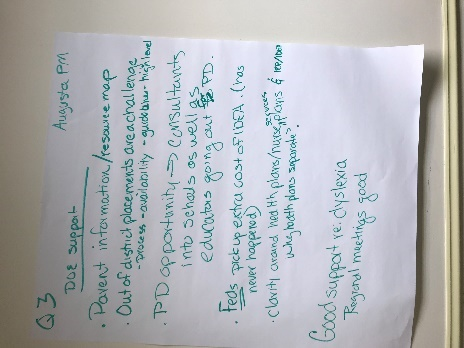 Augusta PM
Q3
DOE support
• Parent information/resource map
• Out of district placements are a challenge
- process - availability - guidelines - high level
• PD opportunity → consultants
into schools as well as
educators going out for PD.
• Feds pick up extra cost of IDEA. (has
never happened)
• Clarity around health plans/nurse services plans &
why health plans separate?
Good support re: dyslexia
Regional meetings good